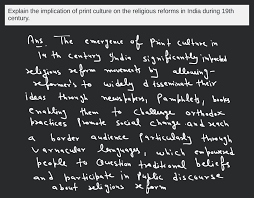 Explain the implication of print culture on the religious reforms in India during 19th
century.
Ans The emergence of Print culture in
19th century India significantly impacted
religious reform movements by allowing-
reformer's to widely disseminate their
ideas through newspapers, Pamphlets, books
enabling them to challenge orthodox
practices Promote social change and reach
a border audience Particularly through
vernacular languages, which empowered
people to question traditional beliefs
and participate in Public discourse
about religious reform